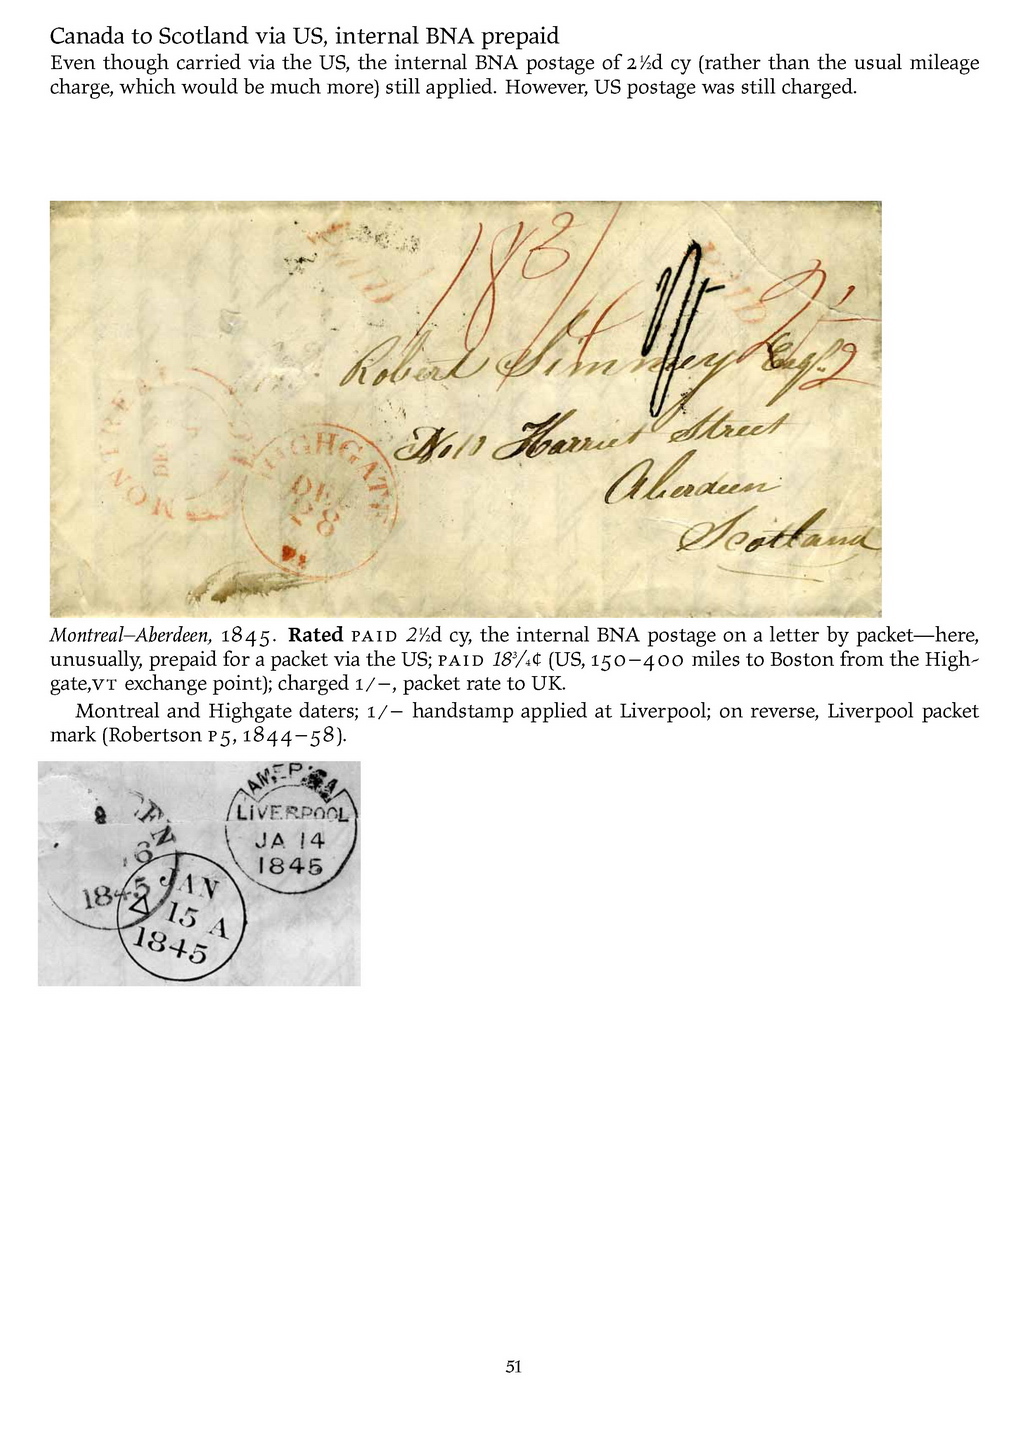 Canada to Scotland via US, internal BNA prepaid
Even though carried via the US, the internal BNA postage of 2½d cy (rather than the usual mileage
charge, which would be much more) still applied. However, US postage was still charged.
PAID
18 3/4
PAID
2½
Robert Simmey Esqr.
No 11 Harriet Street
Aberdeen
Scotland
MONTREAL
DE
HIGHGATE
DEC
28
Montreal–Aberdeen, 1845. Rated PAID 2½d cy, the internal BNA postage on a letter by packet—here,
unusually, prepaid for a packet via the US; PAID 18¾¢ (US, 150–400 miles to Boston from the High-
gate,VT exchange point); charged 1/–, packet rate to UK.
Montreal and Highgate daters; 1/– handstamp applied at Liverpool; on reverse, Liverpool packet
mark (Robertson P5, 1844–58).
AMERICA
LIVERPOOL
JA 14
1845
1845
JAN
15 A
1845
51